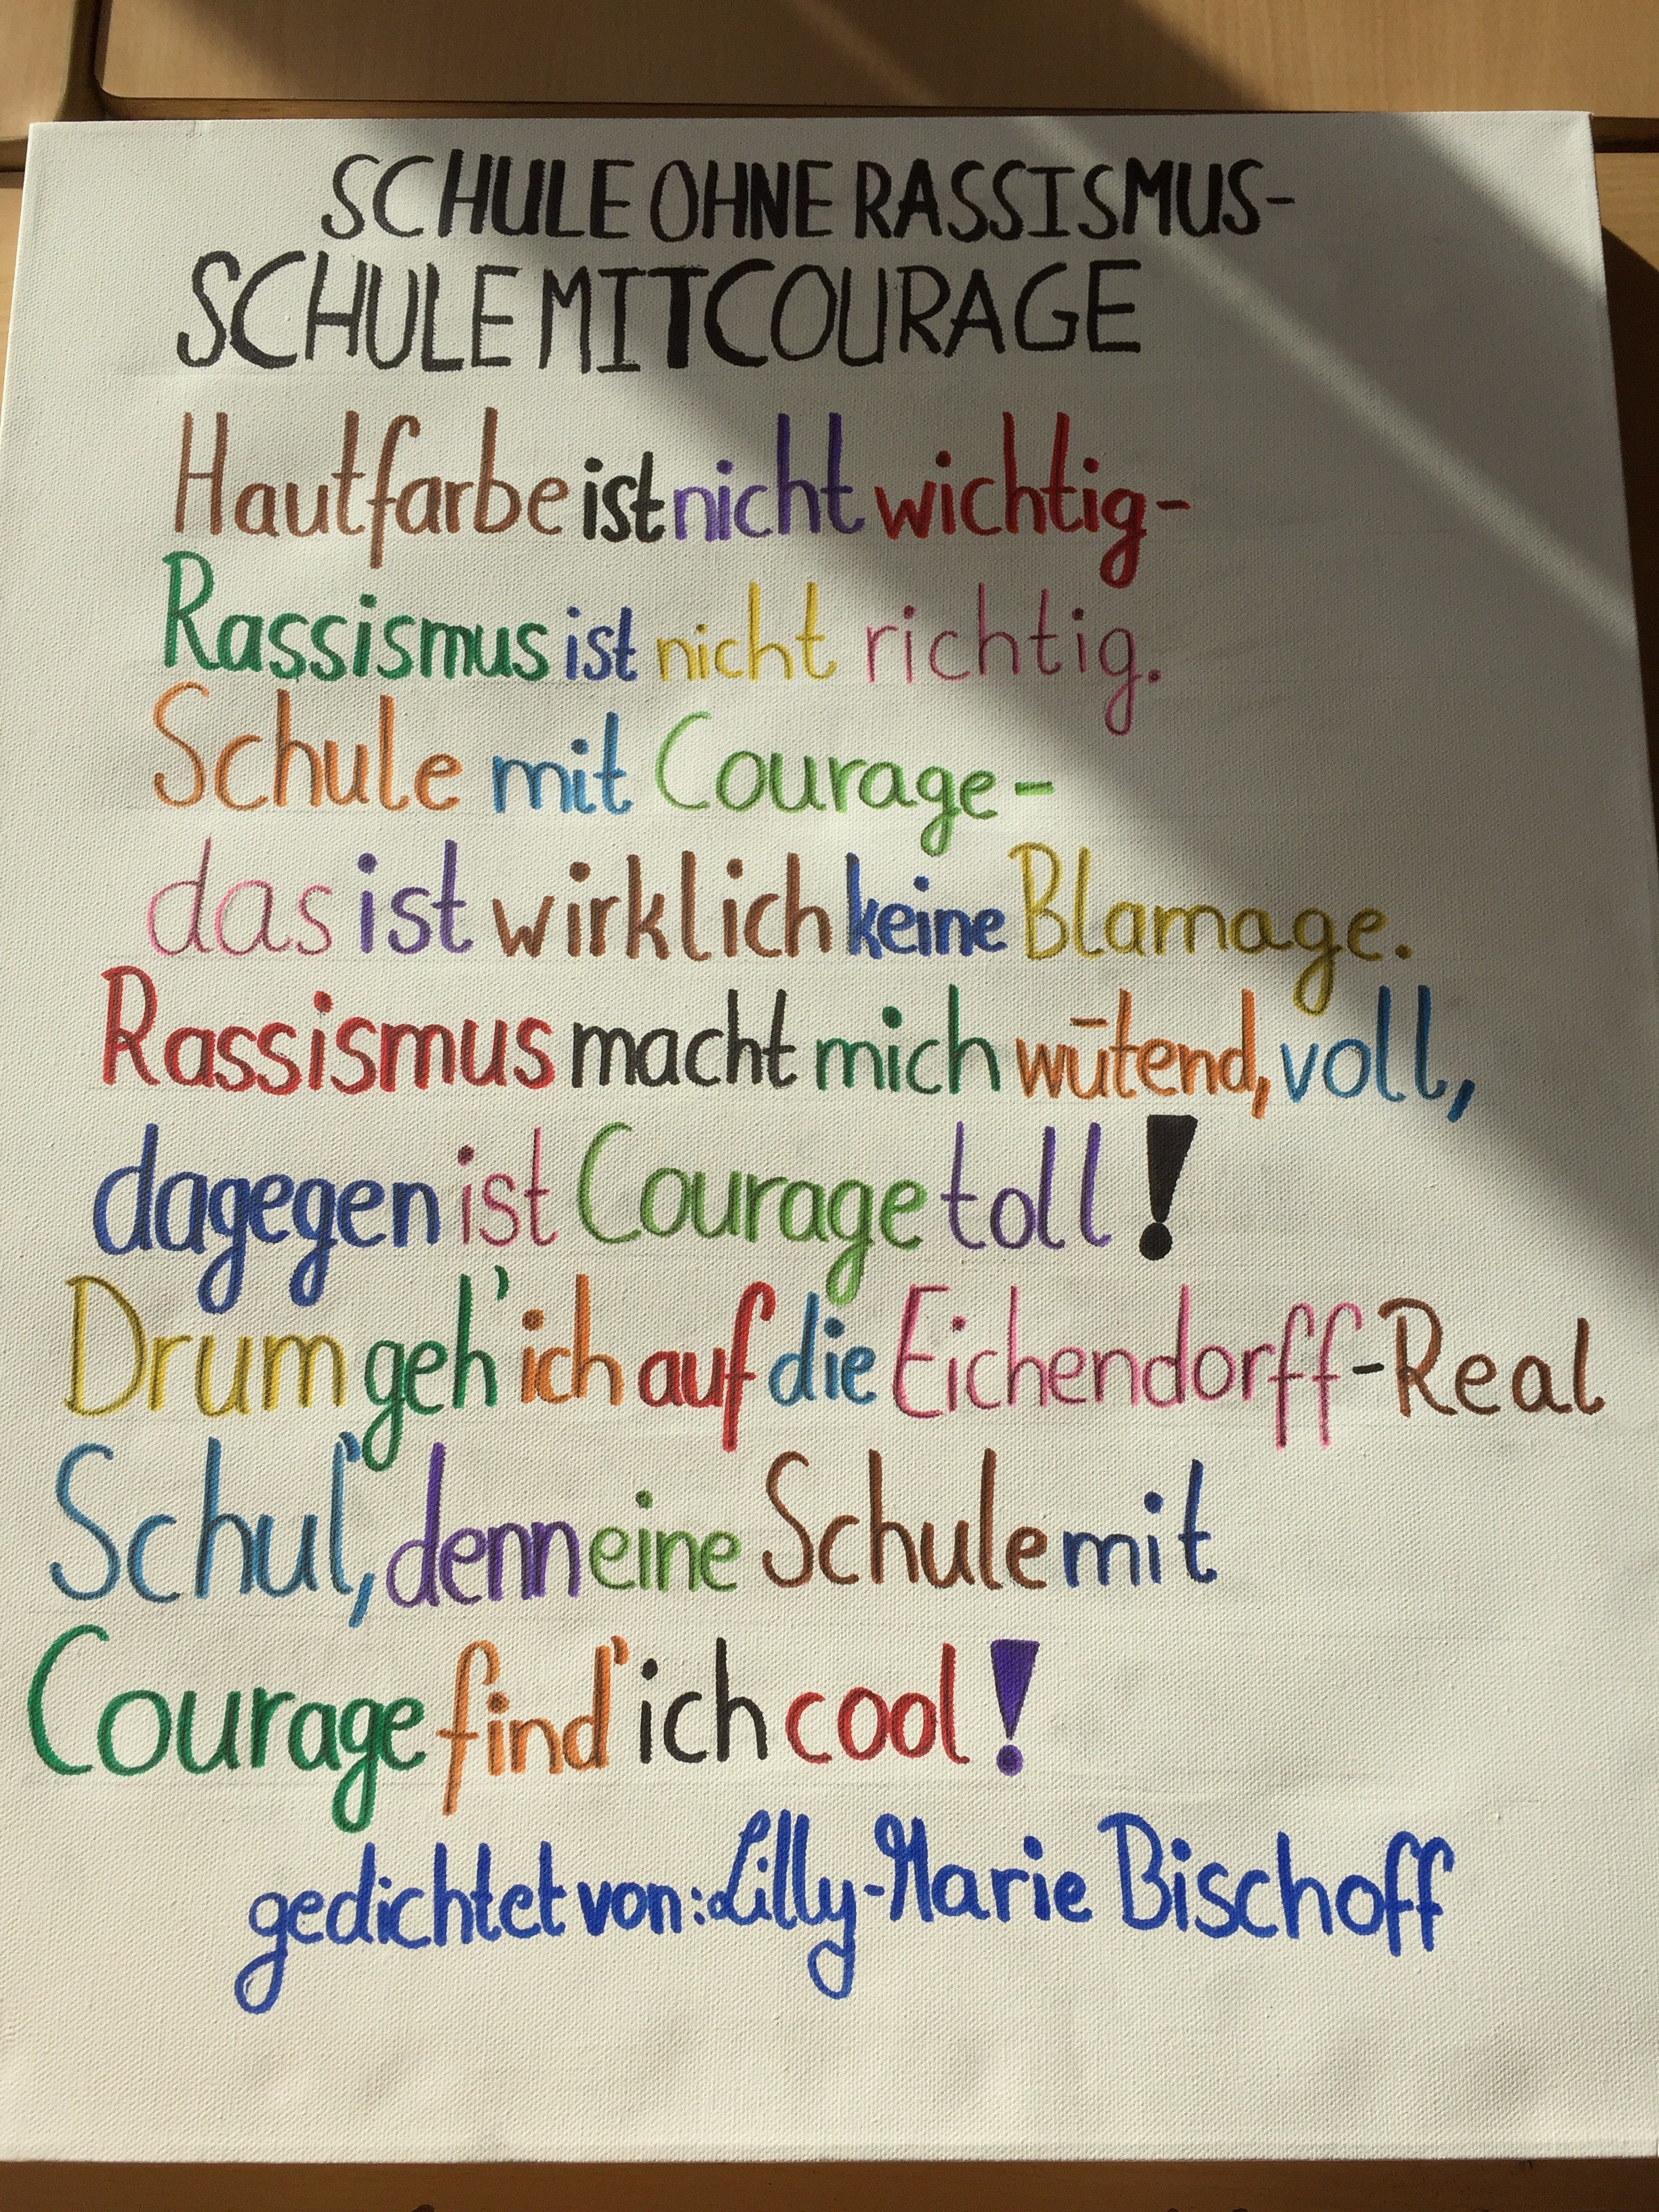 SCHULE OHNE RASSISMUS-
SCHULE MIT COURAGE
Hautfarbe ist nicht wichtig-
Rassismus ist nicht richtig.
Schule mit Courage-
das ist wirklich keine Blamage.
Rassismus macht mich wütend, voll,
dagegen ist Courage toll!
Drum geh' ich auf die Eichendorff-Real
Schul', denn eine Schule mit
Courage find' ich cool!
gedichtet von: Lilly-Marie Bischoff